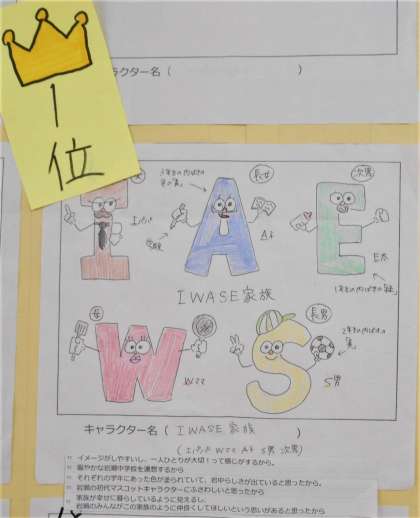 ラクター名（　　　　　　）
1
位
長女
次男
Iパパ
A子
E太
IWASE家族
母
長男
Wママ
S男
キャラクター名（ IWASE 家族 ）
（Iパパ Wママ A子 S男 次男）
イメージがしやすいし、一人ひとりが大切！って感じがするから。
賑やかな岩瀬中学校を連想するから
それぞれの学年にあった色が塗られていて、岩中らしさが出ていると思ったから。
岩瀬の初代マスコットキャラクターにふさわしいと思ったから
家族が幸せに暮らしているように見えるし、
岩瀬のみんながこの家族のように仲良くしてほしいという思いがあると思ったから